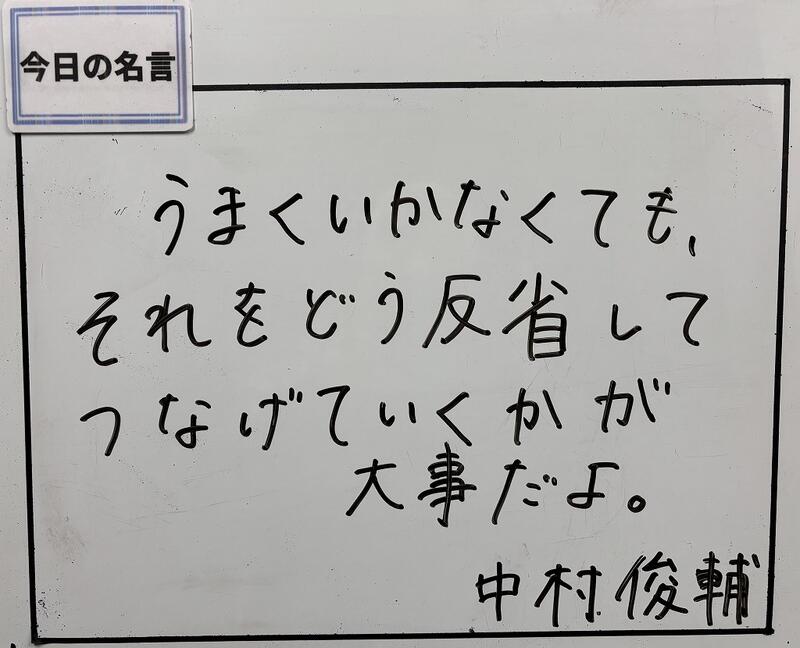 今日の名言
うまくいかなくても、
それをどう反省して
つなげていくかが
大事だよ。
中村俊輔